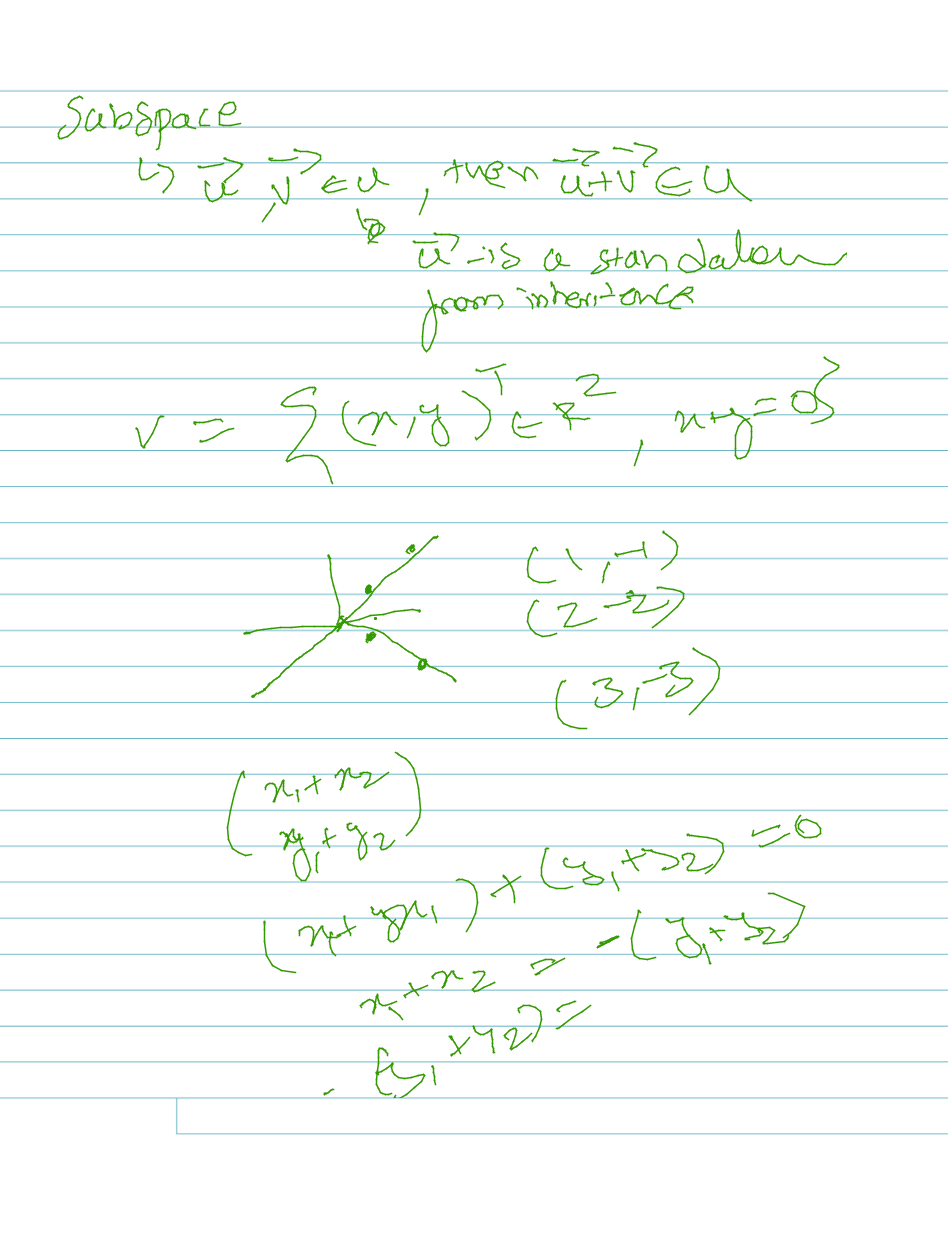 Subspace
↳ u⃗, v⃗ ∈ U, then u⃗+v⃗ ∈ U
u⃗ is a standalon
from inheritence
V = {(x,y)ᵀ ∈ R², x+y=0}
(1,-1)
(2-2)
(3,-3)
(x₁+x₂
y₁+y₂)
) + (y₁+y₂) = 0
x₁+x₂ = -(y₁+y₂)
-(y₁+y₂) =